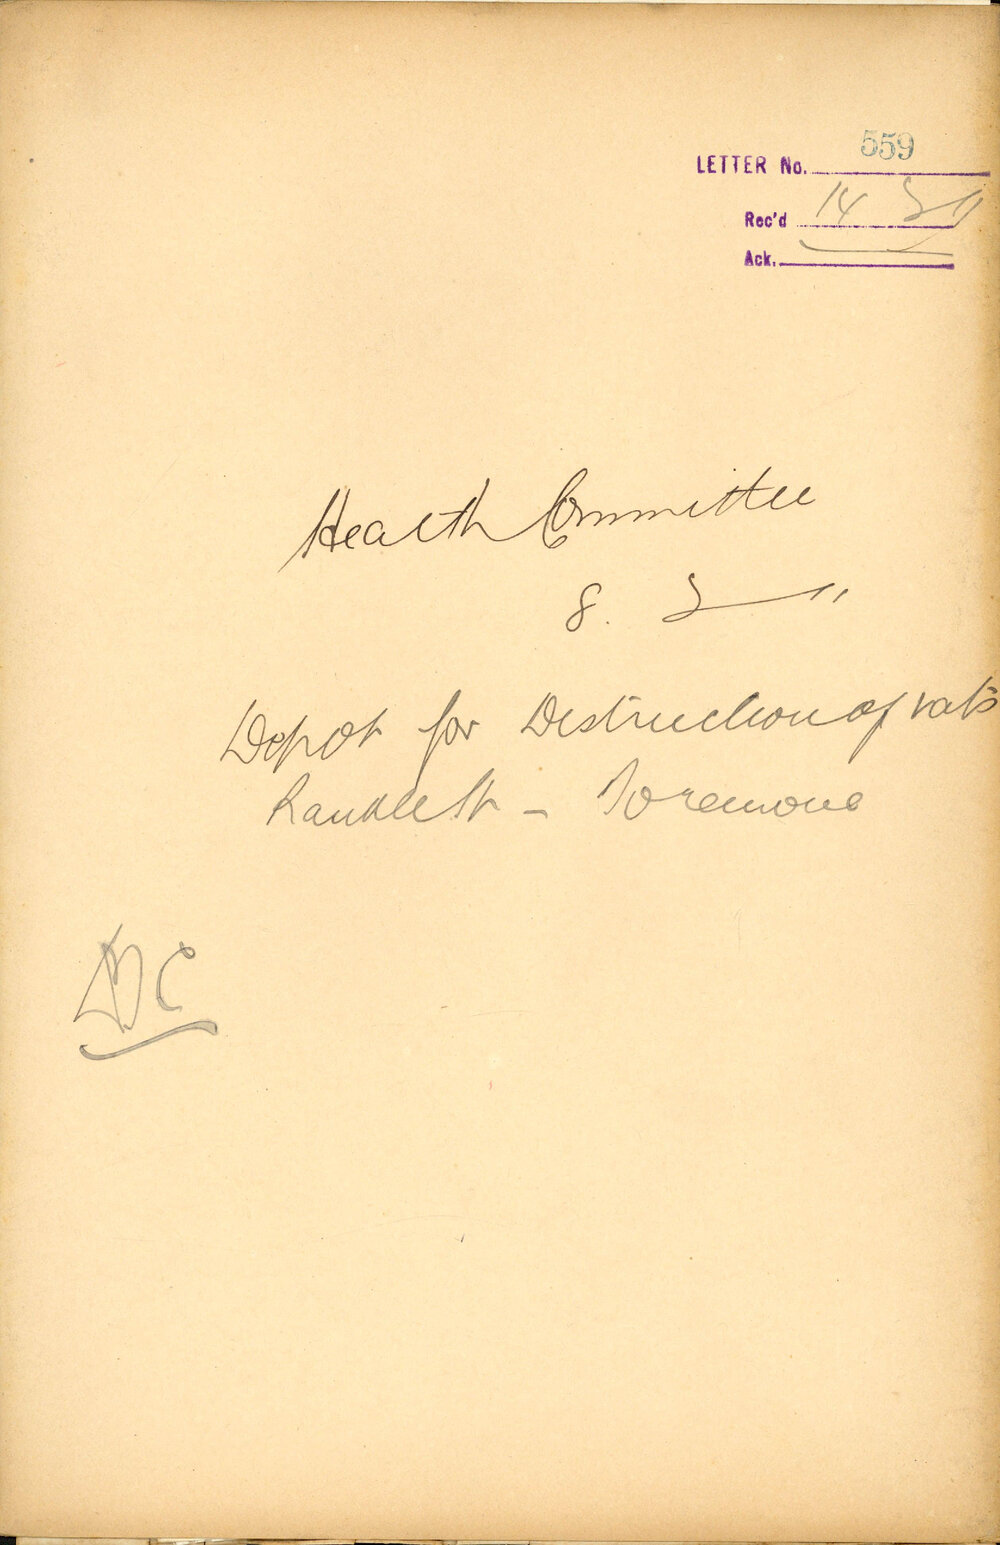 LETTER No. 559
Rec'd 14 2 11
Ack.
Health Committee
8. 2 11
Depot for Destruction of rats
Randle St - To remove